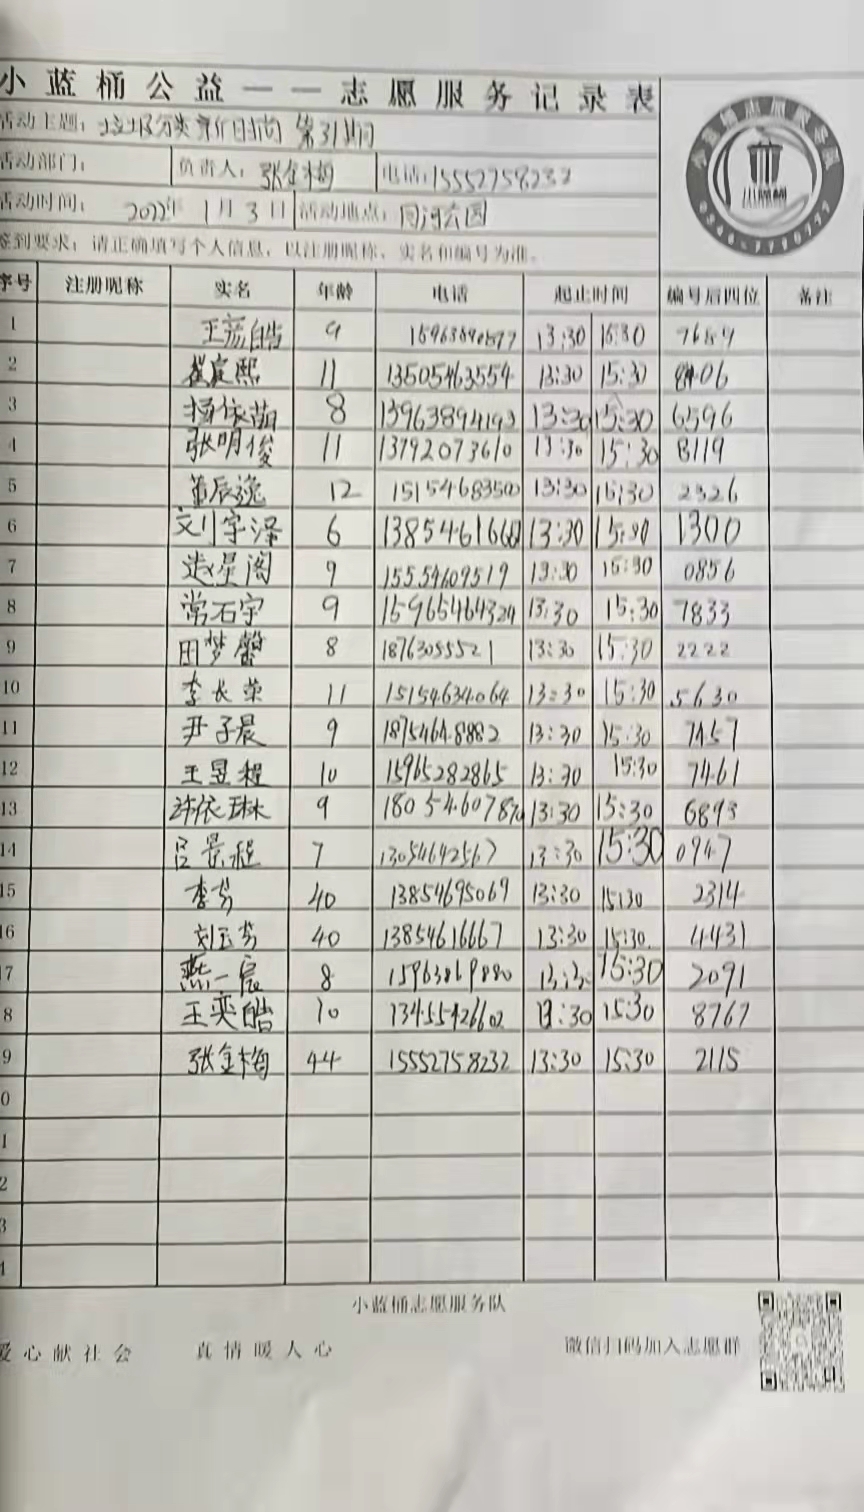 小蓝桶公益——志愿服务记录表
活动主题：垃圾分类新时尚 第31期
活动部门： 负责人：张金梅 电话：15552758232
活动时间： 2022年 1月3日 活动地点：
签到要求：请正确填写个人信息，以注册昵称、实名和编号为准。
序号 注册昵称 实名 年龄 电话 起止时间 编号后四位 备注
1 9 13:30 15:30
2 崔宸熙 11 13505463554 13:30 15:30
3 杨依萌 8 13963894193 13:30 15:30 6596
4 张明俊 11 13792073610 13:30 15:30 8119
5 董辰逸 12 15154683500 13:30 15:30 2326
6 刘宇泽 6 13:30 15:30 1300
7 赵星阁 9 15554609519 13:30 15:30 0856
8 常石宇 9 15965464324 13:30 15:30 7833
9 田梦馨 8 18763055521 13:30 15:30 2222
10 李长荣 11 15154634064 13:30 15:30 5630
11 尹子晨 9 18754648882 13:30 15:30 7457
12 王昱程 10 15965282865 13:30 15:30 7461
13 许依琳 9 13:30 15:30 6893
14 吕景程 7 13054642567 13:30 15:30 0947
15 李芳 40 13854695069 13:30 15:30 2314
16 刘玉芳 40 13854616667 13:30 15:30 4431
7 燕一宸 8 15963869880 13:30 15:30 2091
8 王奕皓 10 13455426602 13:30 15:30 8767
9 张金梅 44 15552758232 13:30 15:30 2115
0
1
2
3
4
小蓝桶志愿服务队
爱心献社会 真情暖人心 微信扫码加入志愿群